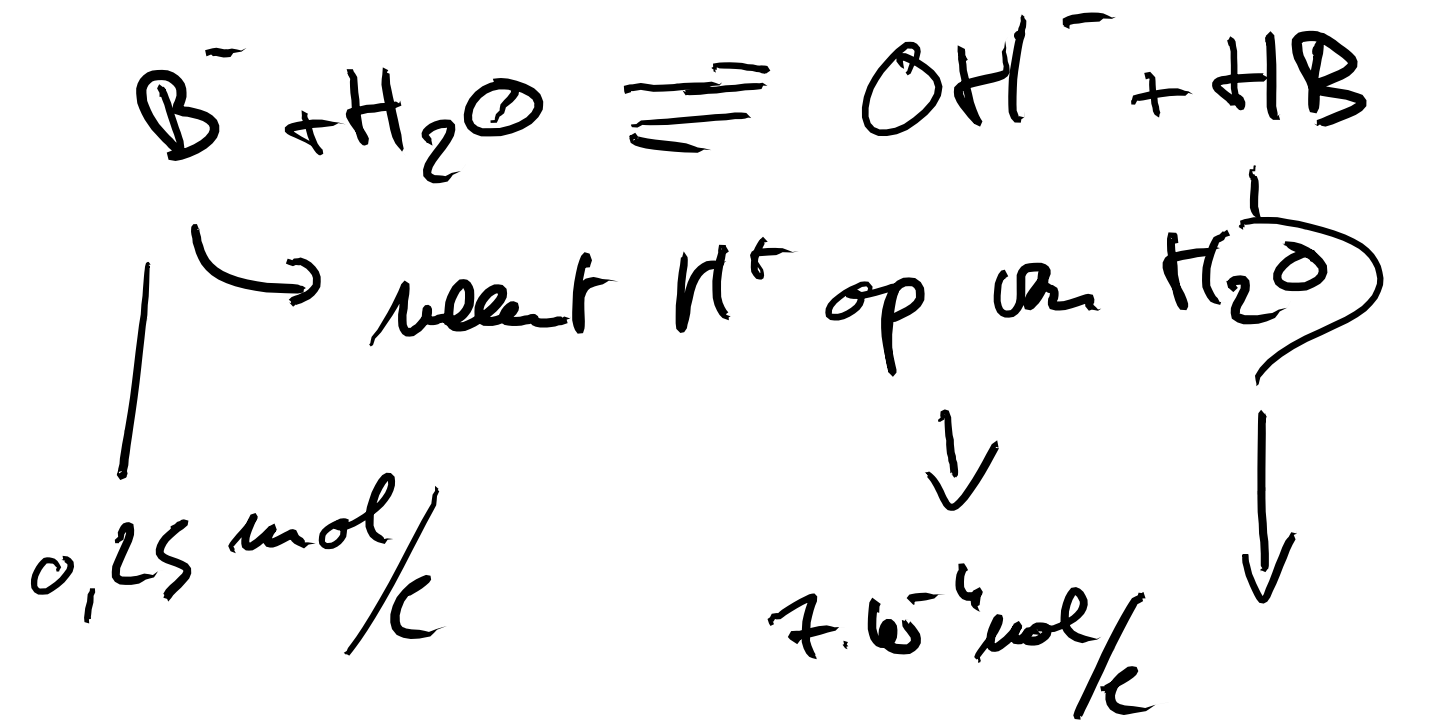 B⁻ + H₂O ⇌ OH⁻ + HB
neemt H⁺ op van H₂O
0,25 mol/l
7.10⁻⁴ mol/l